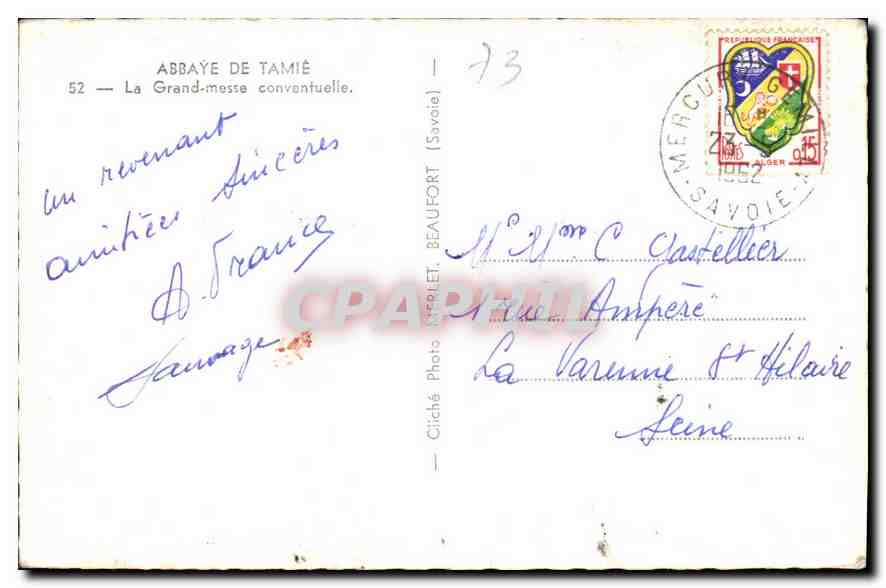 ABBAYE DE TAMIÉ
52 — La Grand-messe conventuelle.
73
un revenant
amitiées sincères
A. France
Sauvage
— Cliché Photo MERLET, BEAUFORT (Savoie) —
CPAPHIL
REPUBLIQUE FRANÇAISE
POSTES
0,15
ALGER
MERCUR
23 -
1962
SAVOIE
Mr Mme C Gastellier
1 rue Ampère
La Varenne St Hilaire
Seine